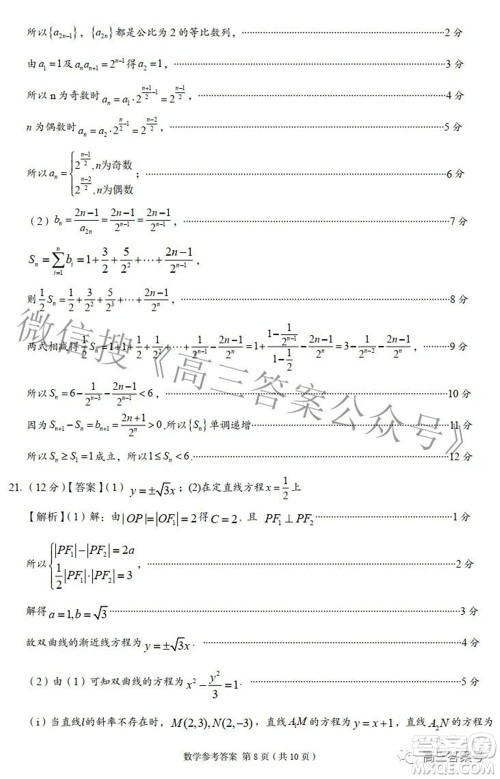 所以{a_{2n-1}}，{a_{2n}}都是公比为 2 的等比数列，……2 分
由 a_1=1 及 a_n a_{n+1}=2^{n-1} 得 a_2=1，……3 分
所以 n 为奇数时 a_n=a_1·2^{\frac{n+1}{2}-1}=2^{\frac{n-1}{2}}，……4 分
n 为偶数时 a_n=a_2·2^{\frac{n}{2}-1}=2^{\frac{n-2}{2}}，……5 分
所以 a_n={2^{\frac{n-1}{2}},n为奇数 2^{\frac{n-2}{2}},n为偶数；……6 分
（2）b_n=\frac{2n-1}{a_{2n}}=\frac{2n-1}{2^{n-1}}=\frac{2n-1}{2^{n-1}}，……7 分
S_n=\sum_{i=1}^{n}b_i=1+\frac{3}{2}+\frac{5}{2^2}+…+\frac{2n-1}{2^{n-1}}，
则\frac{1}{2}S_n=\frac{1}{2}+\frac{3}{2^2}+\frac{5}{2^3}+…+\frac{2n-1}{2^n}，……8 分
两式相减得\frac{1}{2}S_n=1+1+\frac{1}{2}+…+\frac{1}{2^{n-2}}-\frac{2n-1}{2^n}=1+\frac{1-\frac{1}{2^{n-1}}}{1-\frac{1}{2}}-\frac{2n-1}{2^n}=3-\frac{1}{2^{n-2}}-\frac{2n-1}{2^n}，……9 分
所以 S_n=6-\frac{1}{2^{n-3}}-\frac{2n-1}{2^{n-1}}<6，……10 分
因为 S_{n+1}-S_n=b_{n+1}=\frac{2n+1}{2^n}>0,所以{S_n}单调递增……11 分
所以 S_n≥S_1=1 成立，所以1≤S_n<6.……12 分
21.（12 分）【答案】（1）y=±√3x；(2)在定直线方程x=\frac{1}{2}上
【解析】（1）解：由|OP|=|OF_1|=2得C=2，且 PF_1⊥PF_2……1 分
所以{|PF_1|-|PF_2|=2a \frac{1}{2}|PF_1|·|PF_2|=3，……2 分
解得 a=1,b=√3……3 分
故双曲线的渐近线方程为 y=±√3x……4 分
（2）由（1）可知双曲线的方程为 x^2-\frac{y^2}{3}=1.
（i）当直线l的斜率不存在时，M(2,3),N(2,-3)，直线A_1M的方程为 y=x+1，直线A_2N的方程为
数学参考答案 第 8 页（共 10 页）
微信搜《高三答案公众号》
高三答案号